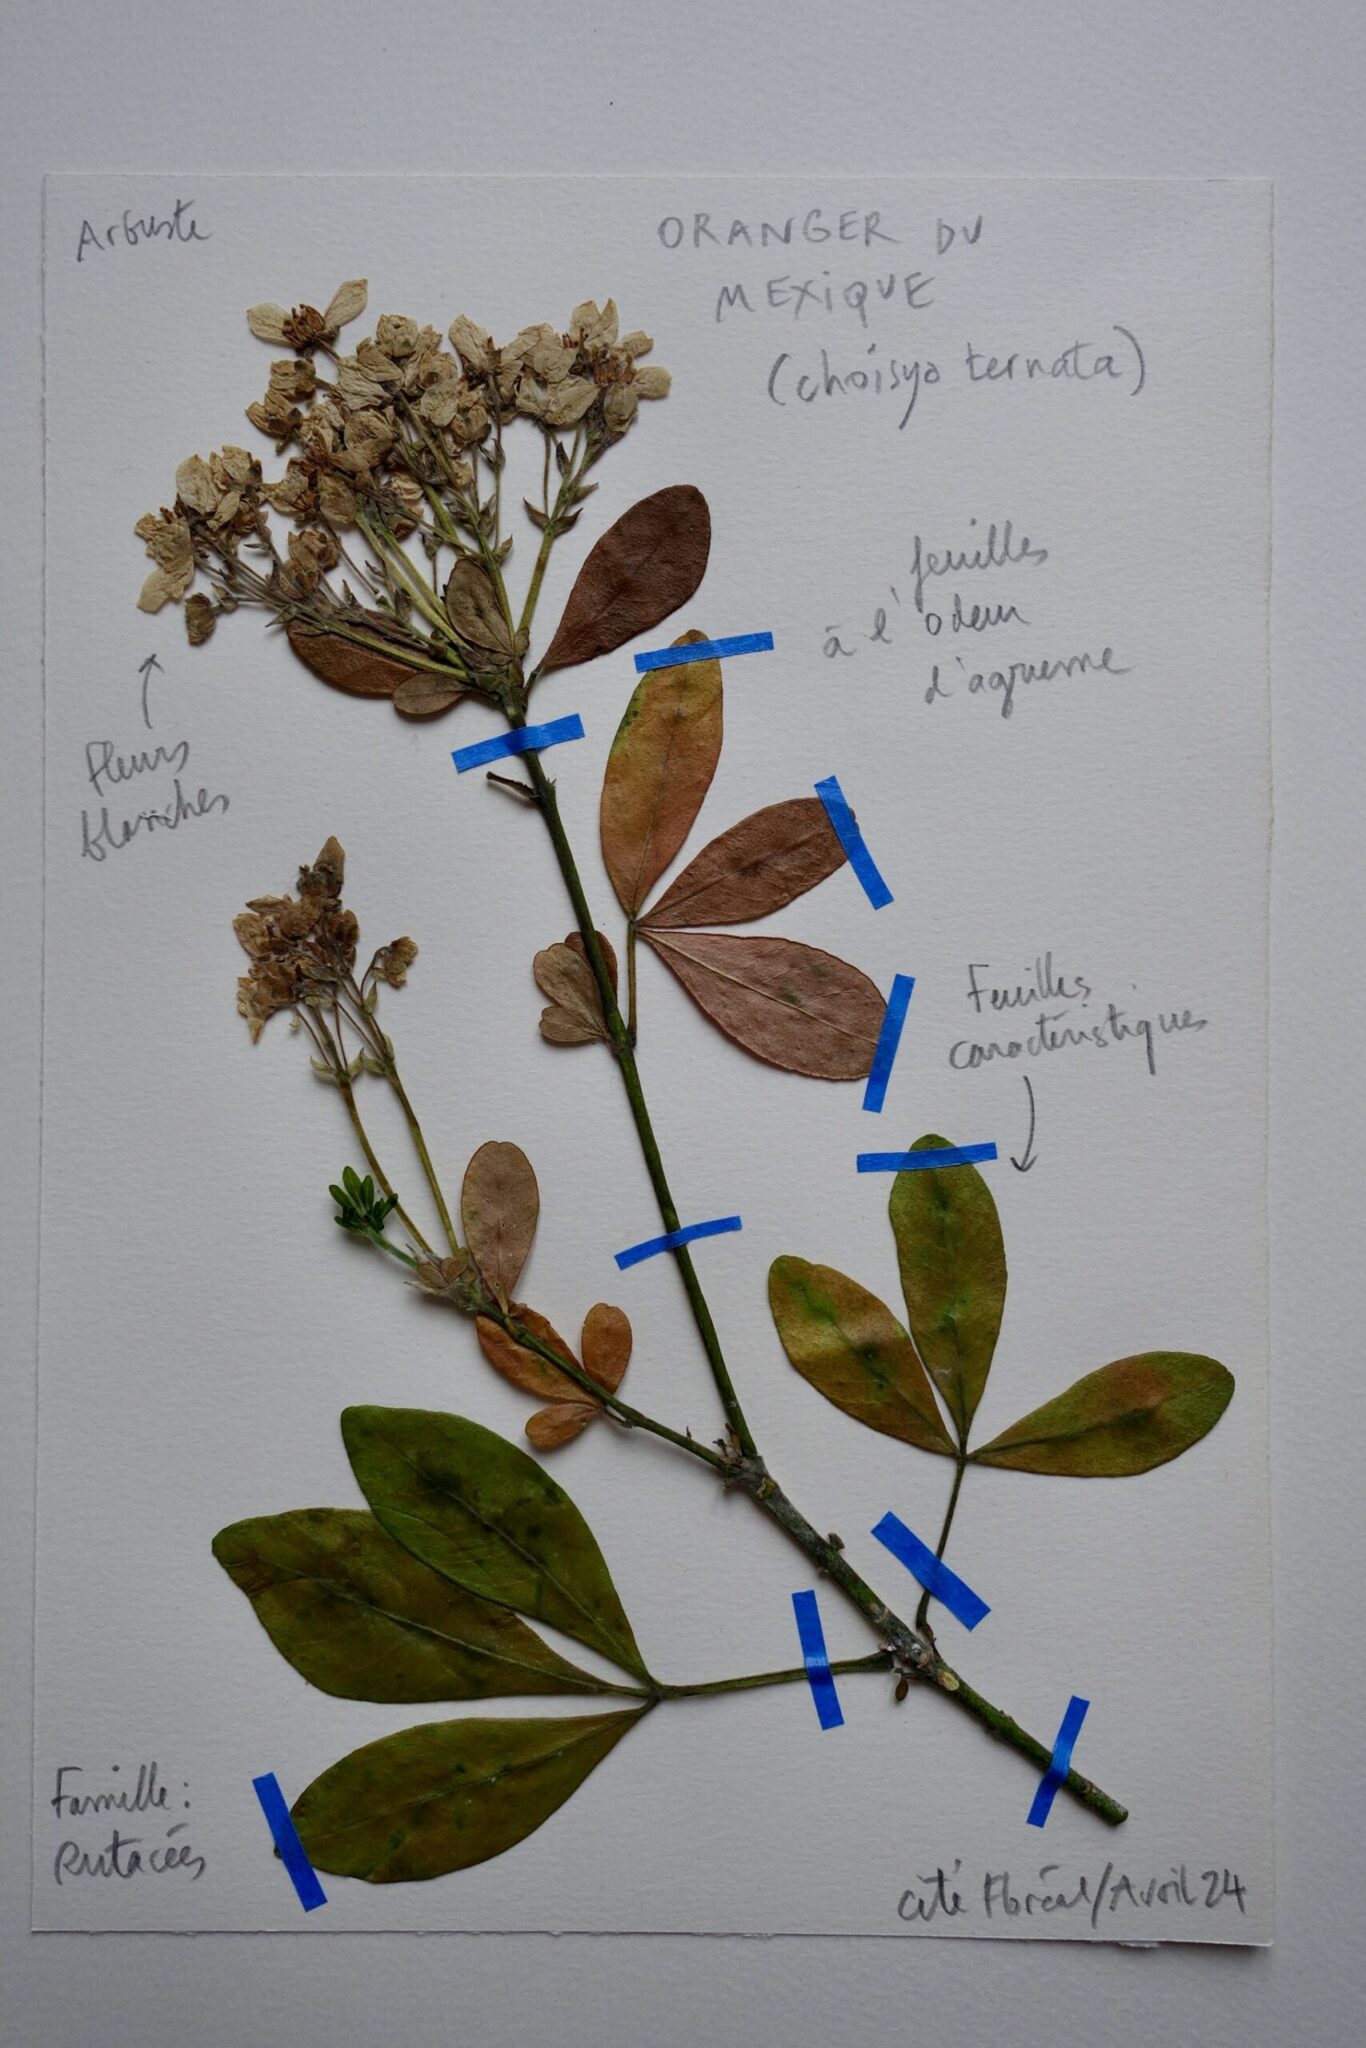 Arbuste
ORANGER DU
MEXIQUE
(choisya ternata)
feuilles
à l'odeur
d'agrume
Fleurs
blanches
Feuilles
caractéristiques
Famille:
Rutacées
Cité Floréal/Avril 24